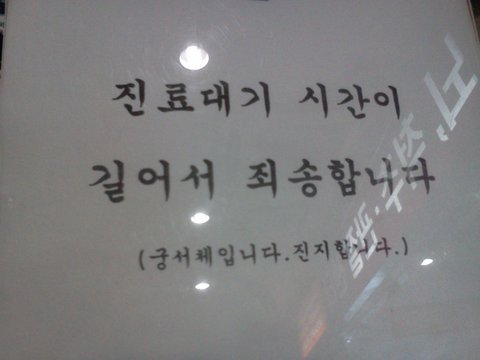 진료대기 시간이
길어서 죄송합니다
(궁서체입니다.진지합니다.)